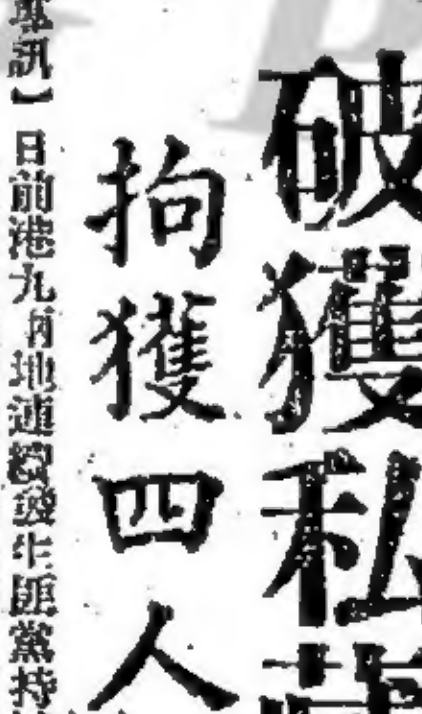 破獲私
拘獲四人
專訊】日前港九兩地連續發生匪黨持